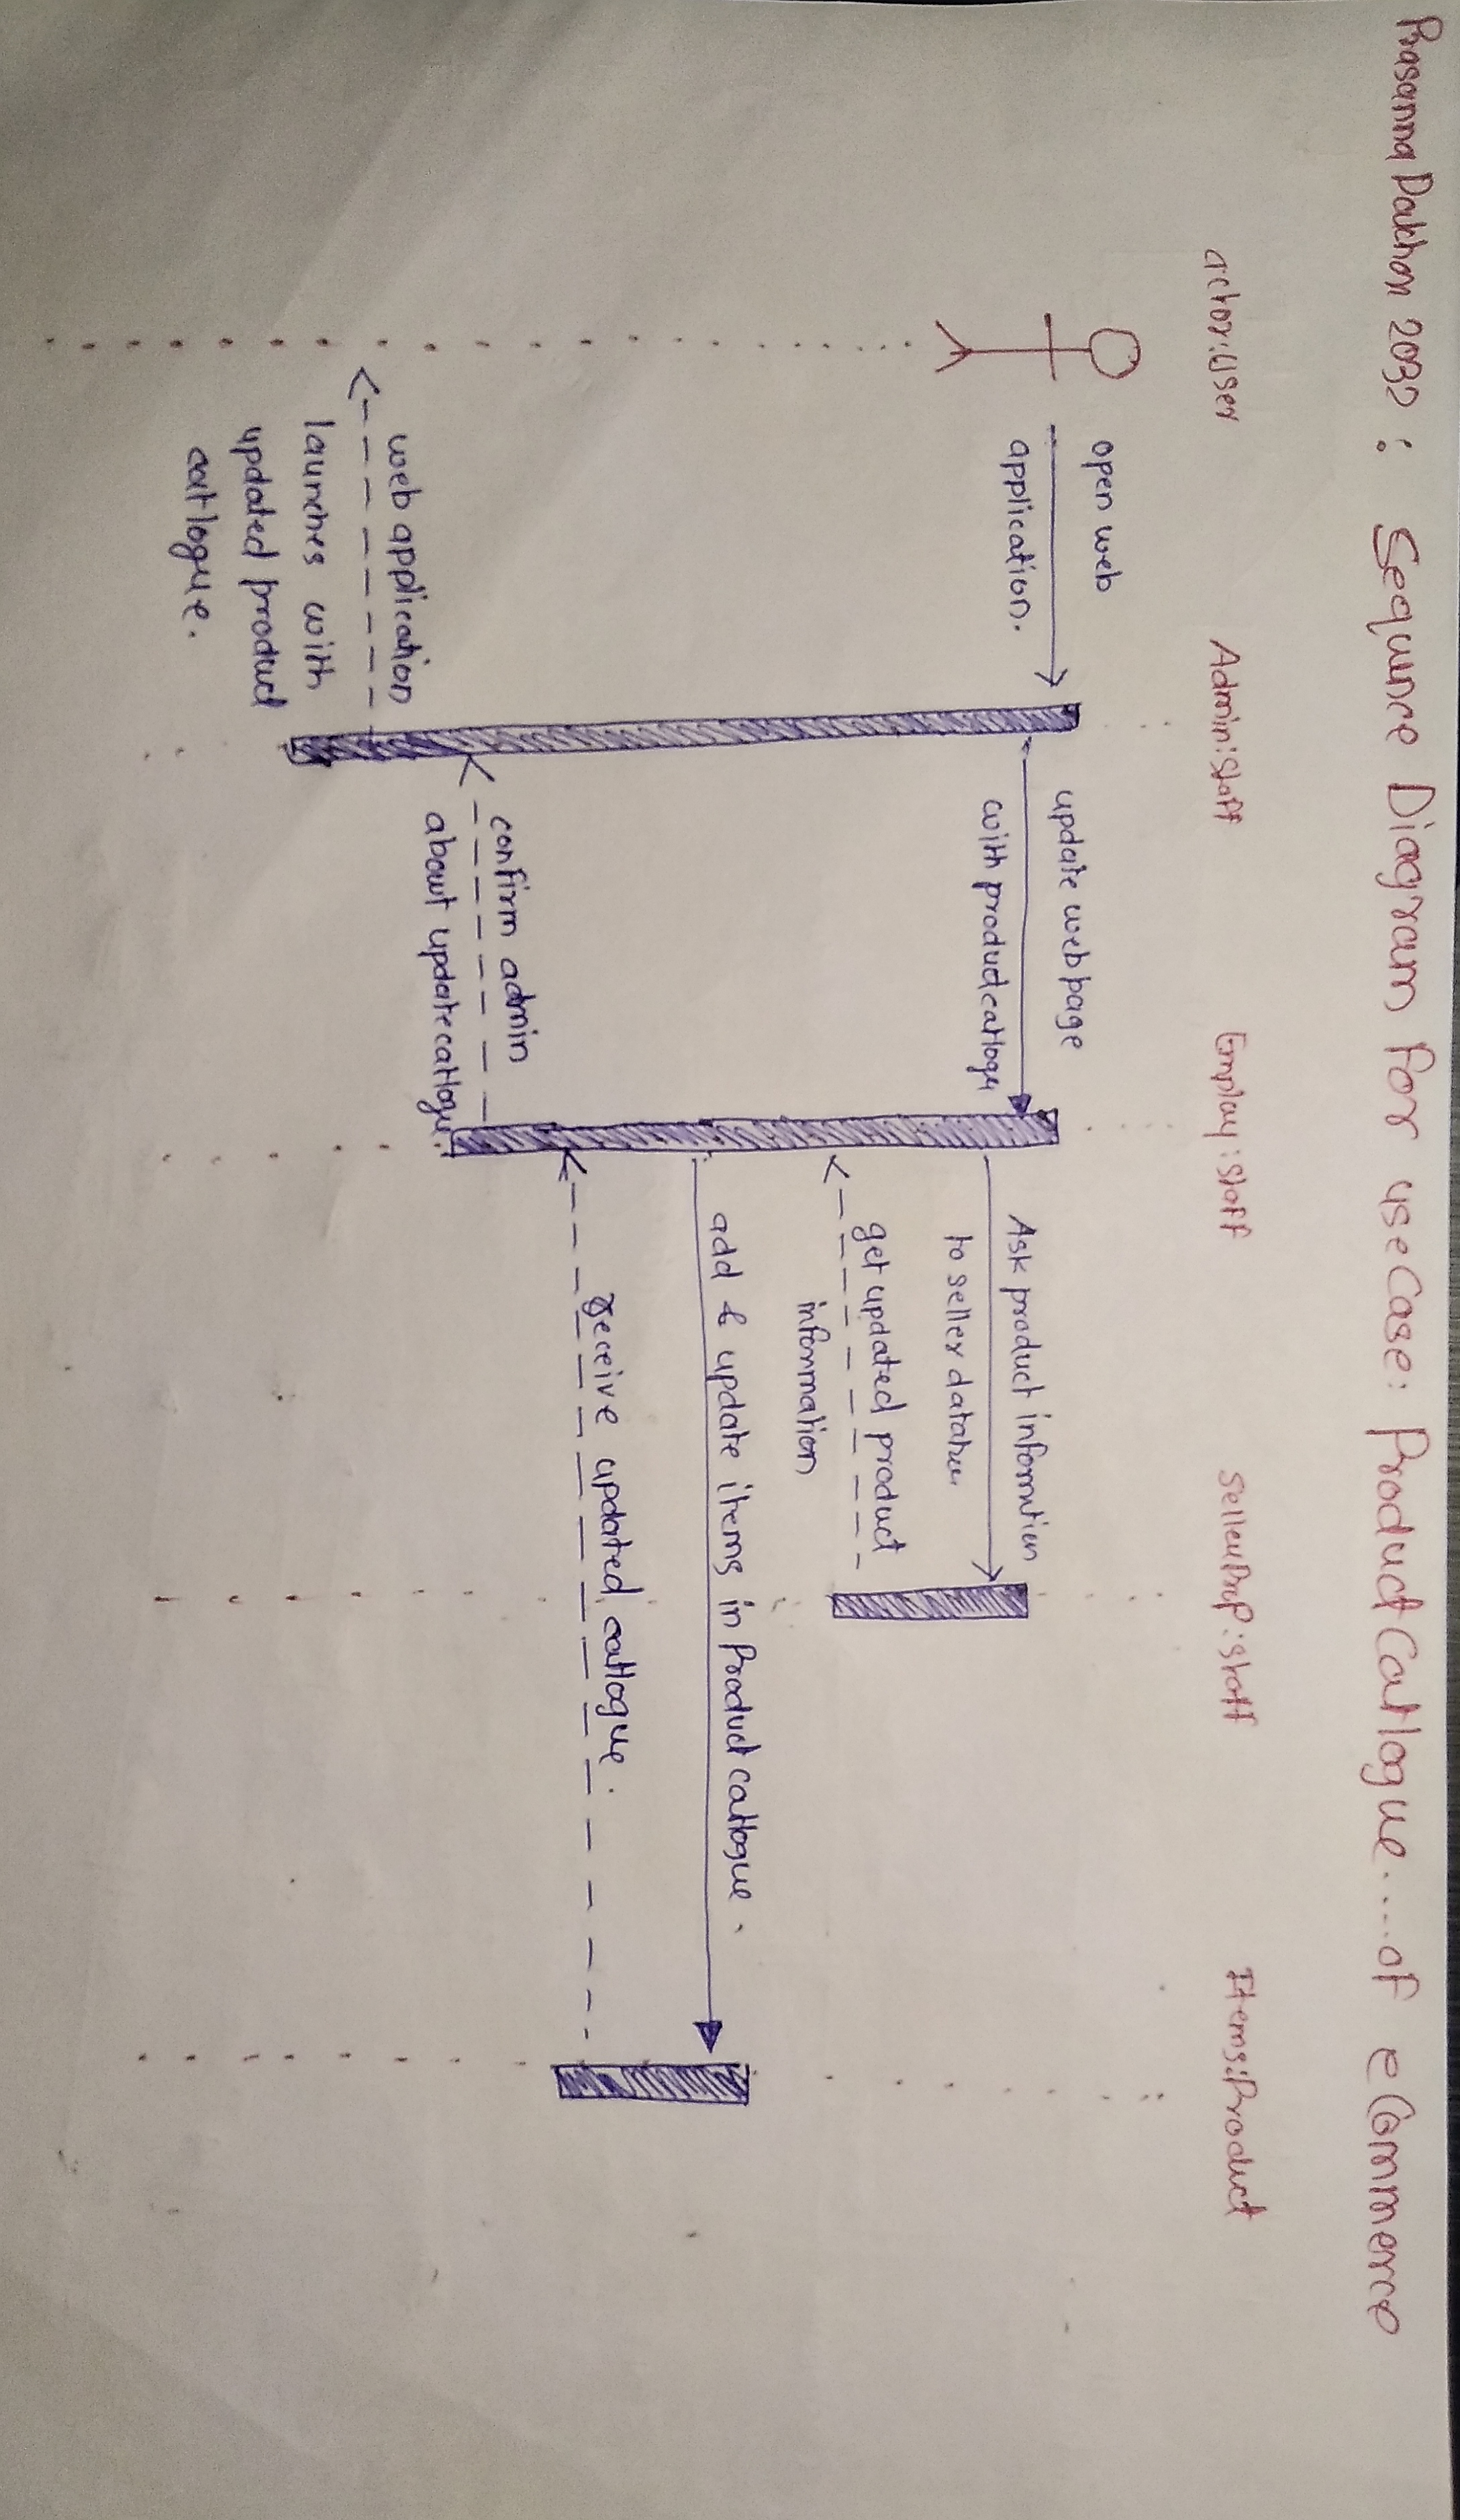 Prasanna Dakhor 2032 : Sequnce Diagram for useCase: Product Catlogue.....of eCommerce
actor:User
Admin:staff
Employ:staff
SellerProf:staff
Items:Product
open web
application.
update webpage
with product catlogu
Ask product information
to seller databse
get updated product
information
add & update items in Product catlogue.
receive updated catlogue.
confirm admin
about update catlogu.
web application
launches with
updated product
catlogue.